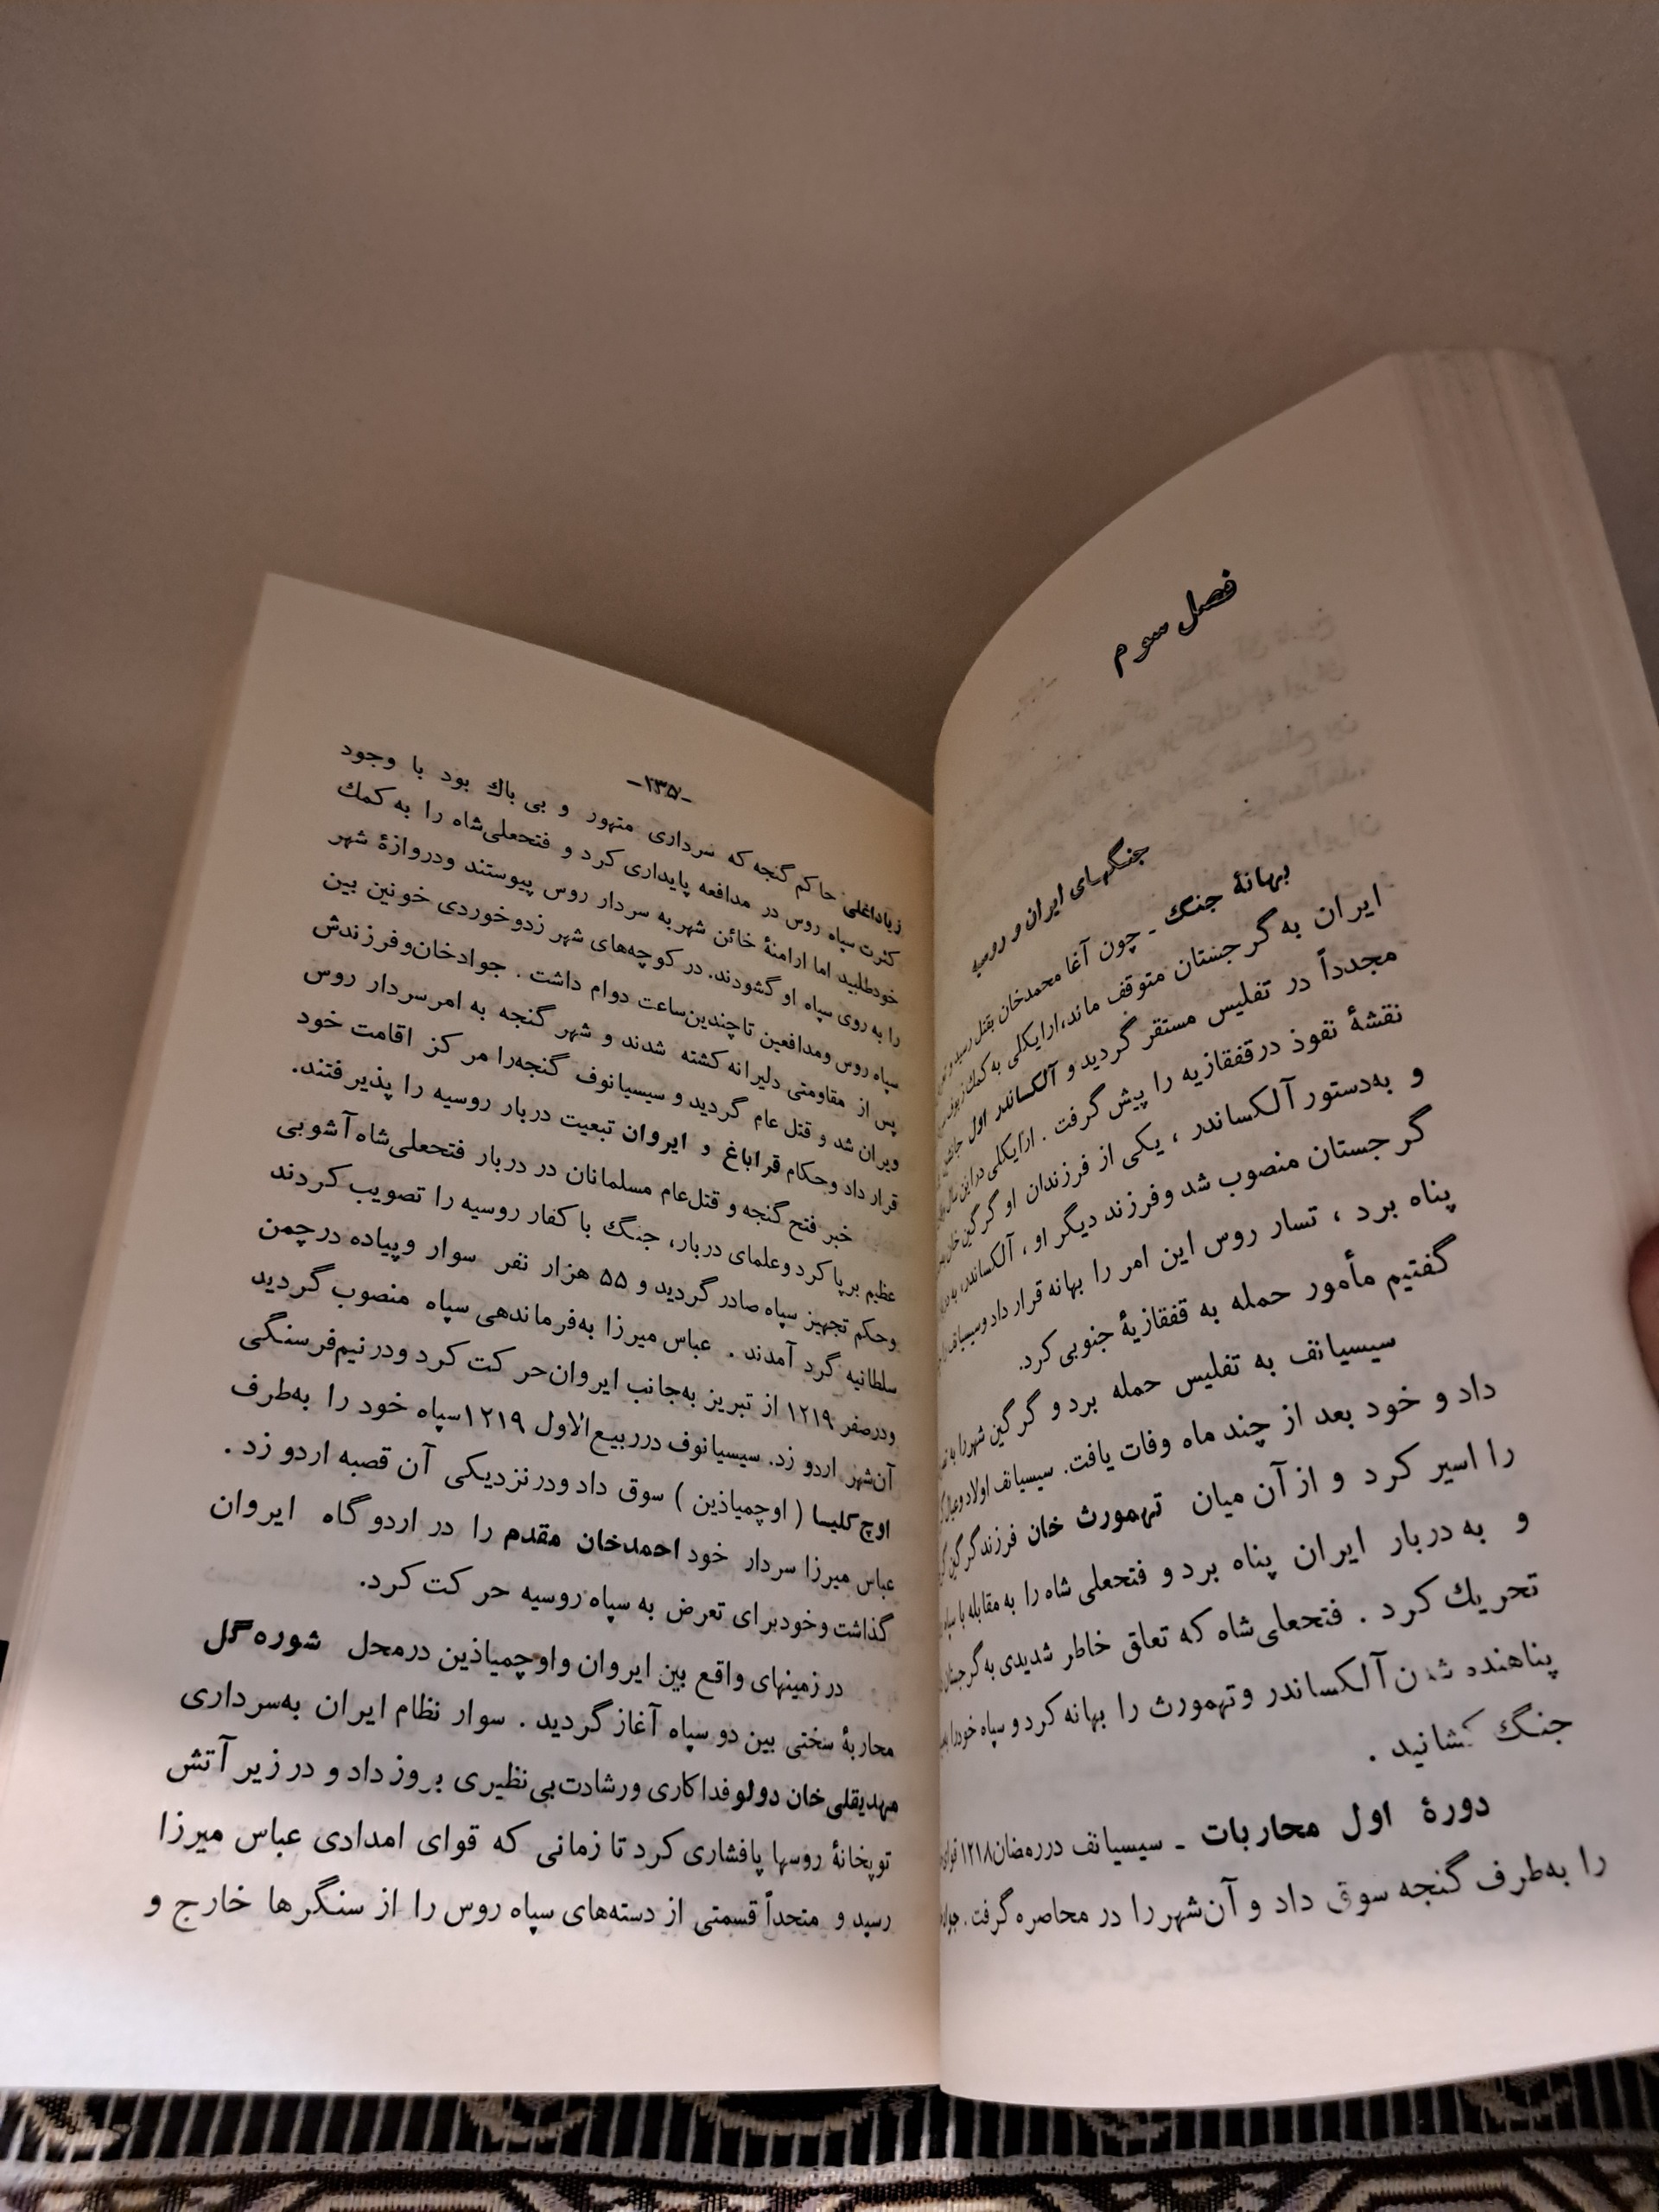 فصل سوم
جنگهای ایران و روسیه
بهانهٔ جنگ ـ چون آغا محمدخان بقتل رسید و
ایران به گرجستان متوقف ماند، ارایکلی به کمک
مجدداً در تفلیس مستقر گردید و آلکساندر اول
نقشهٔ نفوذ در قفقازیه را پیش گرفت . ارایکلی در این سال
و به‌دستور آلکساندر ، یکی از فرزندان او گرگین خان
گرجستان منصوب شد و فرزند دیگر او ، آلکساندر،
پناه برد ، تسار روس این امر را بهانه قرار داد و سیسیانف
گفتیم مأمور حمله به قفقازیهٔ جنوبی کرد.
سیسیانف به تفلیس حمله برد و گرگین شهر را
داد و خود بعد از چند ماه وفات یافت. سیسیانف اولاد و عیال
را اسیر کرد و از آن میان تهمورث خان فرزند گرگین
و به دربار ایران پناه برد و فتحعلی شاه را به مقابله با سپاه
تحریك کرد . فتحعلی‌شاه که تعلق خاطر شدیدی به گرجستان
پناهنده شدن آلکساندر و تهمورث را بهانه کرد و سپاه خود را
جنگ کشانید .
دورهٔ اول محاربات ـ سیسیانف در رمضان ۱۲۱۸ قوای
را به‌طرف گنجه سوق داد و آن‌شهر را در محاصره گرفت .
ـ۲۳۵ـ
زیاداغلی حاکم گنجه که سرداری متهور و بی باك بود با وجود
کثرت سپاه روس در مدافعه پایداری کرد و فتحعلی‌شاه را به کمك
خودطلبید اما ارامنهٔ خائن شهر به سردار روس پیوستند و دروازهٔ شهر
را به روی سپاه او گشودند. در کوچه‌های شهر زدوخوردی خونین بین
سپاه روس و مدافعین تا چندین ساعت دوام داشت . جوادخان و فرزندش
پس از مقاومتی دلیرانه کشته شدند و شهر گنجه به امر سردار روس
ویران شد و قتل عام گردید و سیسیانوف گنجه را مرکز اقامت خود
قرار داد و حکام قراباغ و ایروان تبعیت دربار روسیه را پذیرفتند.
خبر فتح گنجه و قتل‌عام مسلمانان در دربار فتحعلی‌شاه آشوبی
عظیم برپا کرد و علمای دربار، جنگ با کفار روسیه را تصویب کردند
وحکم تجهیز سپاه صادر گردید و ۵۵ هزار نفر سوار و پیاده در چمن
سلطانیه گرد آمدند . عباس میرزا به‌فرماندهی سپاه منصوب گردید
ودرصفر ۱۲۱۹ از تبریز به‌جانب ایروان حرکت کرد و در نیم‌فرسنگی
آن‌شهر اردو زد. سیسیانوف در ربیع‌الاول ۱۲۱۹ سپاه خود را به‌طرف
اوچ کلیسا ( اوچمیاذین ) سوق داد و در نزدیکی آن قصبه اردو زد .
عباس میرزا سردار خود احمدخان مقدم را در اردوگاه ایروان
گذاشت و خود برای تعرض به سپاه روسیه حرکت کرد.
در زمینهای واقع بین ایروان و اوچمیاذین در محل شوره گل
محاربهٔ سختی بین دو سپاه آغاز گردید . سوار نظام ایران به‌سرداری
مهدیقلی‌خان دولو فداکاری و رشادت بی‌نظیری بروز داد و در زیر آتش
توپخانهٔ روسها پافشاری کرد تا زمانی که قوای امدادی عباس میرزا
رسید و متحداً قسمتی از دسته‌های سپاه روس را از سنگرها خارج و